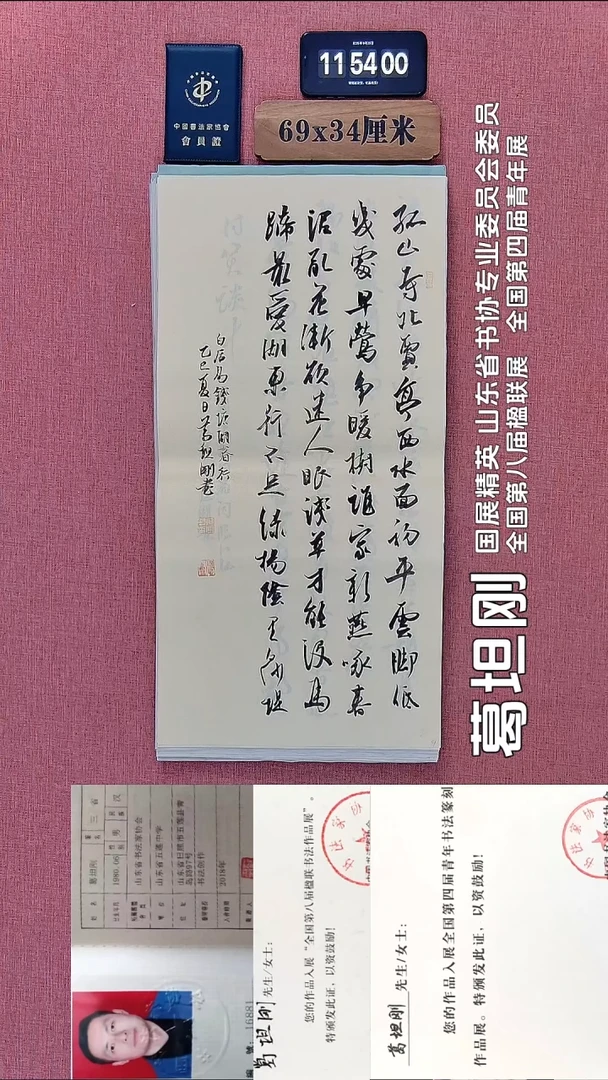 中國書法家協會
會員證
11 54 00
69x34厘米
孤山寺北賈亭西水面初平雲腳低
幾處早鶯爭暖樹誰家新燕啄春
泥亂花漸欲迷人眼淺草才能沒馬
蹄最愛湖東行不足綠楊陰里白沙堤
白居易錢塘湖春行
乙巳夏日葛坦剛書
葛坦刚
国展精英 山东省书协专业委员会委员
全国第八届楹联展 全国第四届青年展
姓名 葛坦刚
性别 男
民族 汉
山东省书法家协会
山东省五莲中学
书法创作
2018年
16881
葛坦刚 先生/女士：
您的作品入展“全国第八届楹联书法作品展”。
特颁发此证，以资鼓励！
葛坦刚 先生/女士：
您的作品入展全国第四届青年书法篆刻
作品展。特颁发此证，以资鼓励！